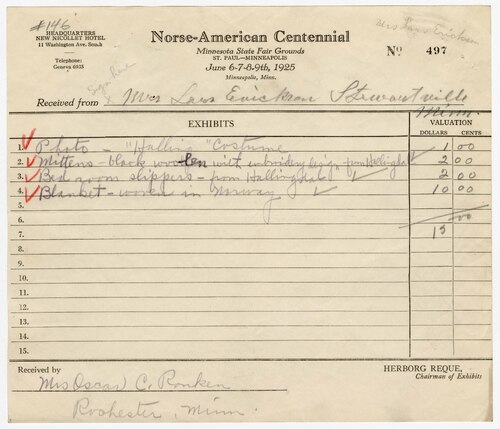 #146
HEADQUARTERS
NEW NICOLLET HOTEL
11 Washington Ave. South
Telephone:
Geneva 6925
Norse-American Centennial
Minnesota State Fair Grounds
ST. PAUL—MINNEAPOLIS
June 6-7-8-9th, 1925
Minneapolis, Minn.
Mrs Lars Erickson
No 497
Received from Mrs Lars Erickson Stewartville
Minn.
EXHIBITS
VALUATION
DOLLARS CENTS
1. Photo - "Halling" Costume 1 00
2. Mittens - black woolen with embroidery design from Hallingdal 2 00
3. Bed room slippers - from Hallingdal 2 00
4. Blanket - woven in Norway 10 00
5.
6. 00
7. 15
8.
9.
10.
11.
12.
13.
14.
15.
Received by
Mrs Oscar C. Ronken
Rochester, Minn.
HERBORG REQUE,
Chairman of Exhibits